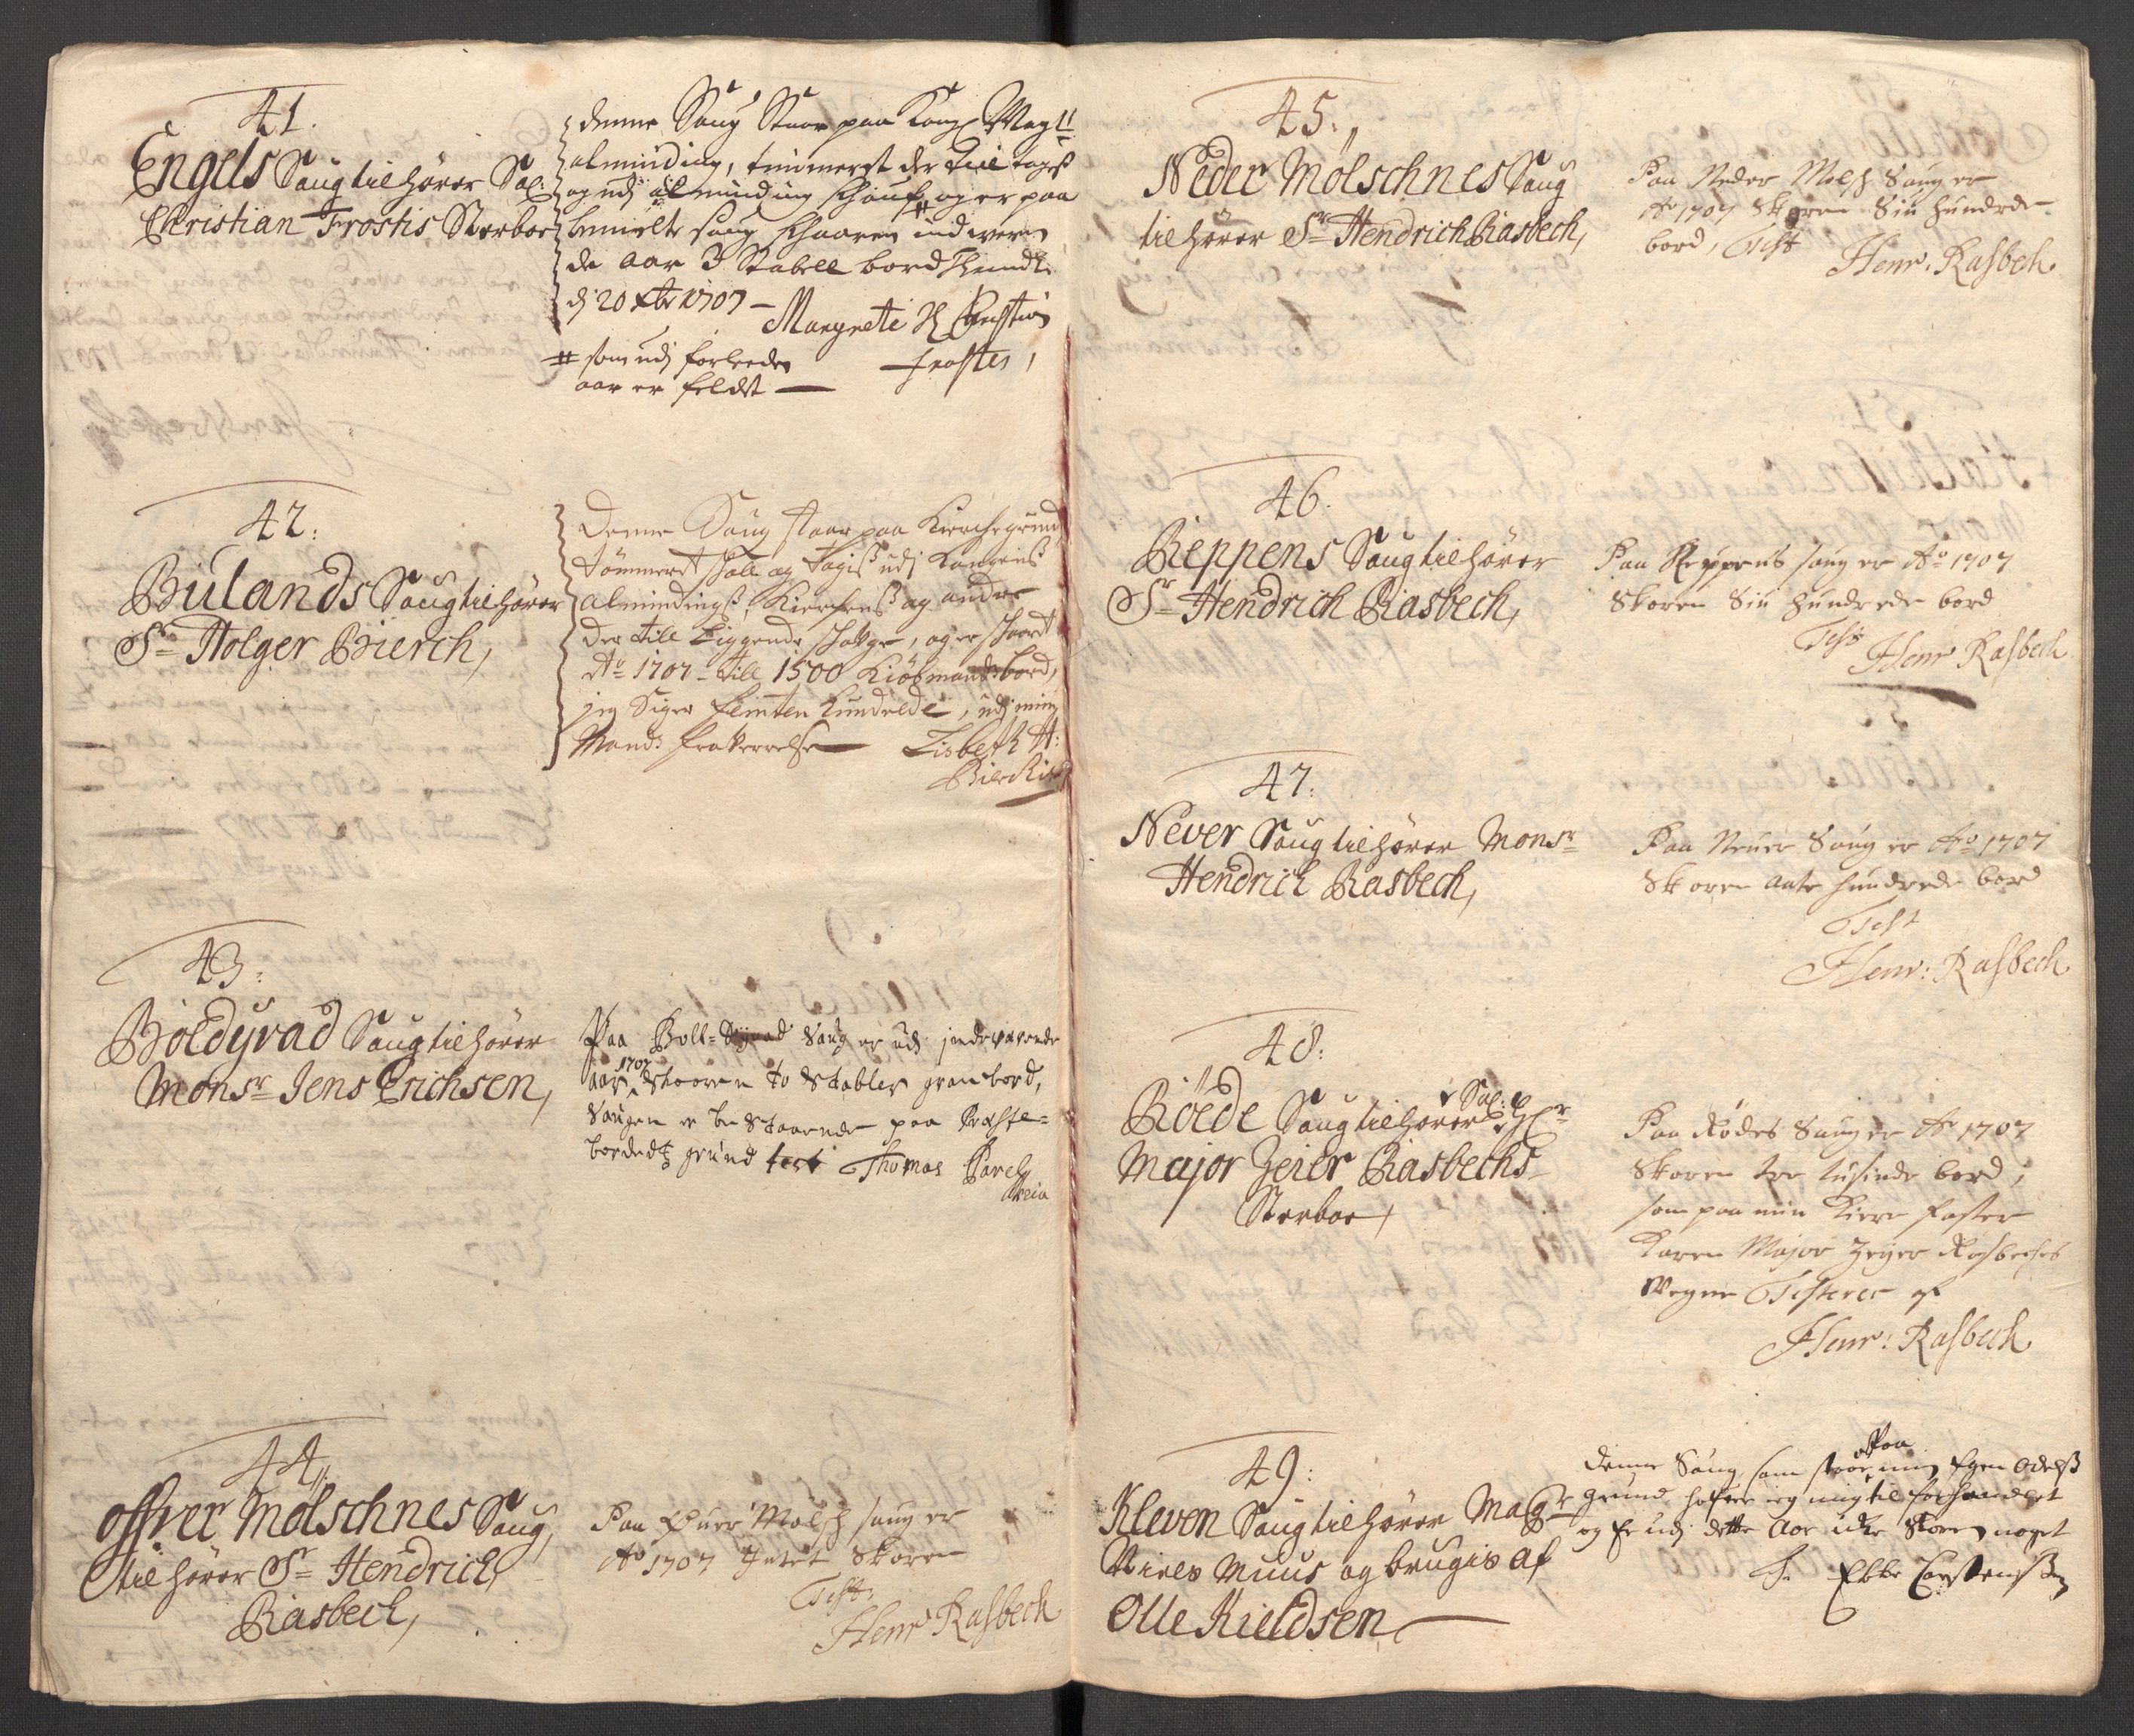 41.
Engels Saug tilhører Sal:
Christian Frostis Sterboe
denne Saug Staar paa Kong Mayt:
alminding, timmeret der till tages
og udj alminding schouf, # og er paa
bemelte saug schaaren indeveren
de aar 3 Stabell bord Thrundh:
dj 20 xbr 1707 – Margrete Sl Christian
Frostes,
# som udj forleeden
aar er feldet —
42:
Bulands Saug tilhører
Sr Holger Bierch,
Denne Saug staar paa Kierche grund
Tømmeret fall og tagis udj Kongens
alminding, Kierchens og andre
der till Liggende schouge, og er schaaret
Ao 1707 – till 1500 Kiöbmands bord,
jeg Siger femten Hundrede, udj min
Mands fraverelse — Lisbeth H:
Bierchis
43:
Boldyrad Saug tilhører
Monsr Jens Erichsen,
Paa Boll= Saug er udj indeverende
aar 1707 skaaren to stabler gran bord,
Saugen er be staaende paa Preste=
bordedtz grund test Thomas Parely
44,
offver Molschnes Saug,
tilhører Sr Hendrich
Rasbech,
Paa Øuer Molsch saug er
Ao 1707 Intet Skoren
Test:
Henr Rasbech
45:
Neder Mölschnes Saug
tilhører Sr Hendrich Rasbech,
Paa Neder Molsch Saug er
Ao 1707 Skoren Siu hundrede
bord, Test Henr: Rasbech
46.
Reppens Saug tilhører
Sr Hendrich Rasbech,
Paa Reppens saug er Ao 1707
Skoren Siu hundrede bord
Test
Henr Rasbech
47:
Never Saug tilhører Monsr
Hendrich Rasbech,
Paa Neuer Saug er Ao 1707
Skoren aate hundrede bord
Test
Henr: Rasbech
48:
Röede Saug tilhører Sal: Hr
Major Zeier Rasbechs
Sterboe,
Paa Rødes Saug er Ao 1707
Skoren tre tusinde bord,
som paa min Kiere faster
Karen Major Zeyer Rasbeches
Vegne Testeres af
Henr: Rasbech
49:
Kleven Saug tilhører Magr
Niels Muus og brugis af
Olle Kieldsen
denne Saug som staar paa min Egen odelss
grund hafver ieg mig til forhandlet
og er udj dette Aar icke skoren noget
T. Ebbe Carstenssen